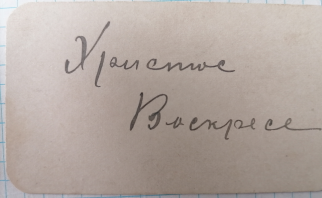 Христос
Воскресе